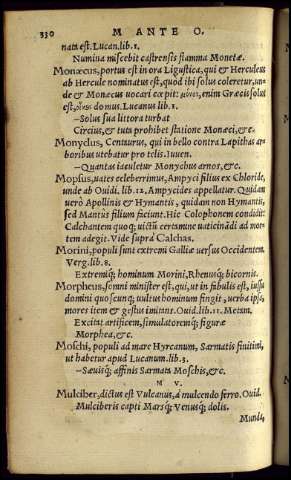 330 M ANTE O.
nata est. Lucan. lib. 1.
Numina miscebit castrensis flamma Monetæ.
Monæcus, portus est in ora Ligustica, qui & Herculeus
ab Hercule nominatus est, quod ibi solus coleretur, un-
de & Monæcus uocari cœpit: μόνος, enim Græcis solus
est, οἶκος domus. Lucanus lib. 1.
—Solus sua littora turbat
Circius, & tuta prohibet statione Monæci, &c.
Monychus, Centaurus, qui in bello contra Lapithas ar-
boribus utebatur pro telis. Iuuen.
—Quantas iaculetur Monychus arnos, &c.
Mopsus, uates celeberrimus, Ampyci filius ex Chloride,
unde ab Ouidi. lib. 12. Ampycides appellatur. Quidam
uerò Apollinis & Hymantis, quidam non Hymantis,
sed Mantus filium faciunt. Hic Colophonem condidit:
Calchantem quoq; uictū certamine uaticinādi ad mor-
tem adegit. Vide supra Calchas.
Morini, populi sunt extremi Galliæ uersus Occidentem.
Verg. lib. 8.
Extremiq; hominum Morini, Rhenusq; bicornis.
Morpheus, somni minister est, qui, ut in fabulis est, iussu
domini quoscunq; uultus hominum fingit, uerba ipsa,
mores item & gestus imitans. Ouid. lib. 11. Metam.
Excitat artificem, simulatoremq; figuræ
Morphea, &c.
Moschi, populi ad mare Hyrcanum, Sarmatis finitimi,
ut habetur apud Lucanum lib. 3.
—Sæuisq; affinis Sarmata Moschis, &c.
M V.
Mulciber, dictus est Vulcanus, à mulcendo ferro. Ouid.
Mulciberis capti Marsq; Venusq; dolis.
Mundā,